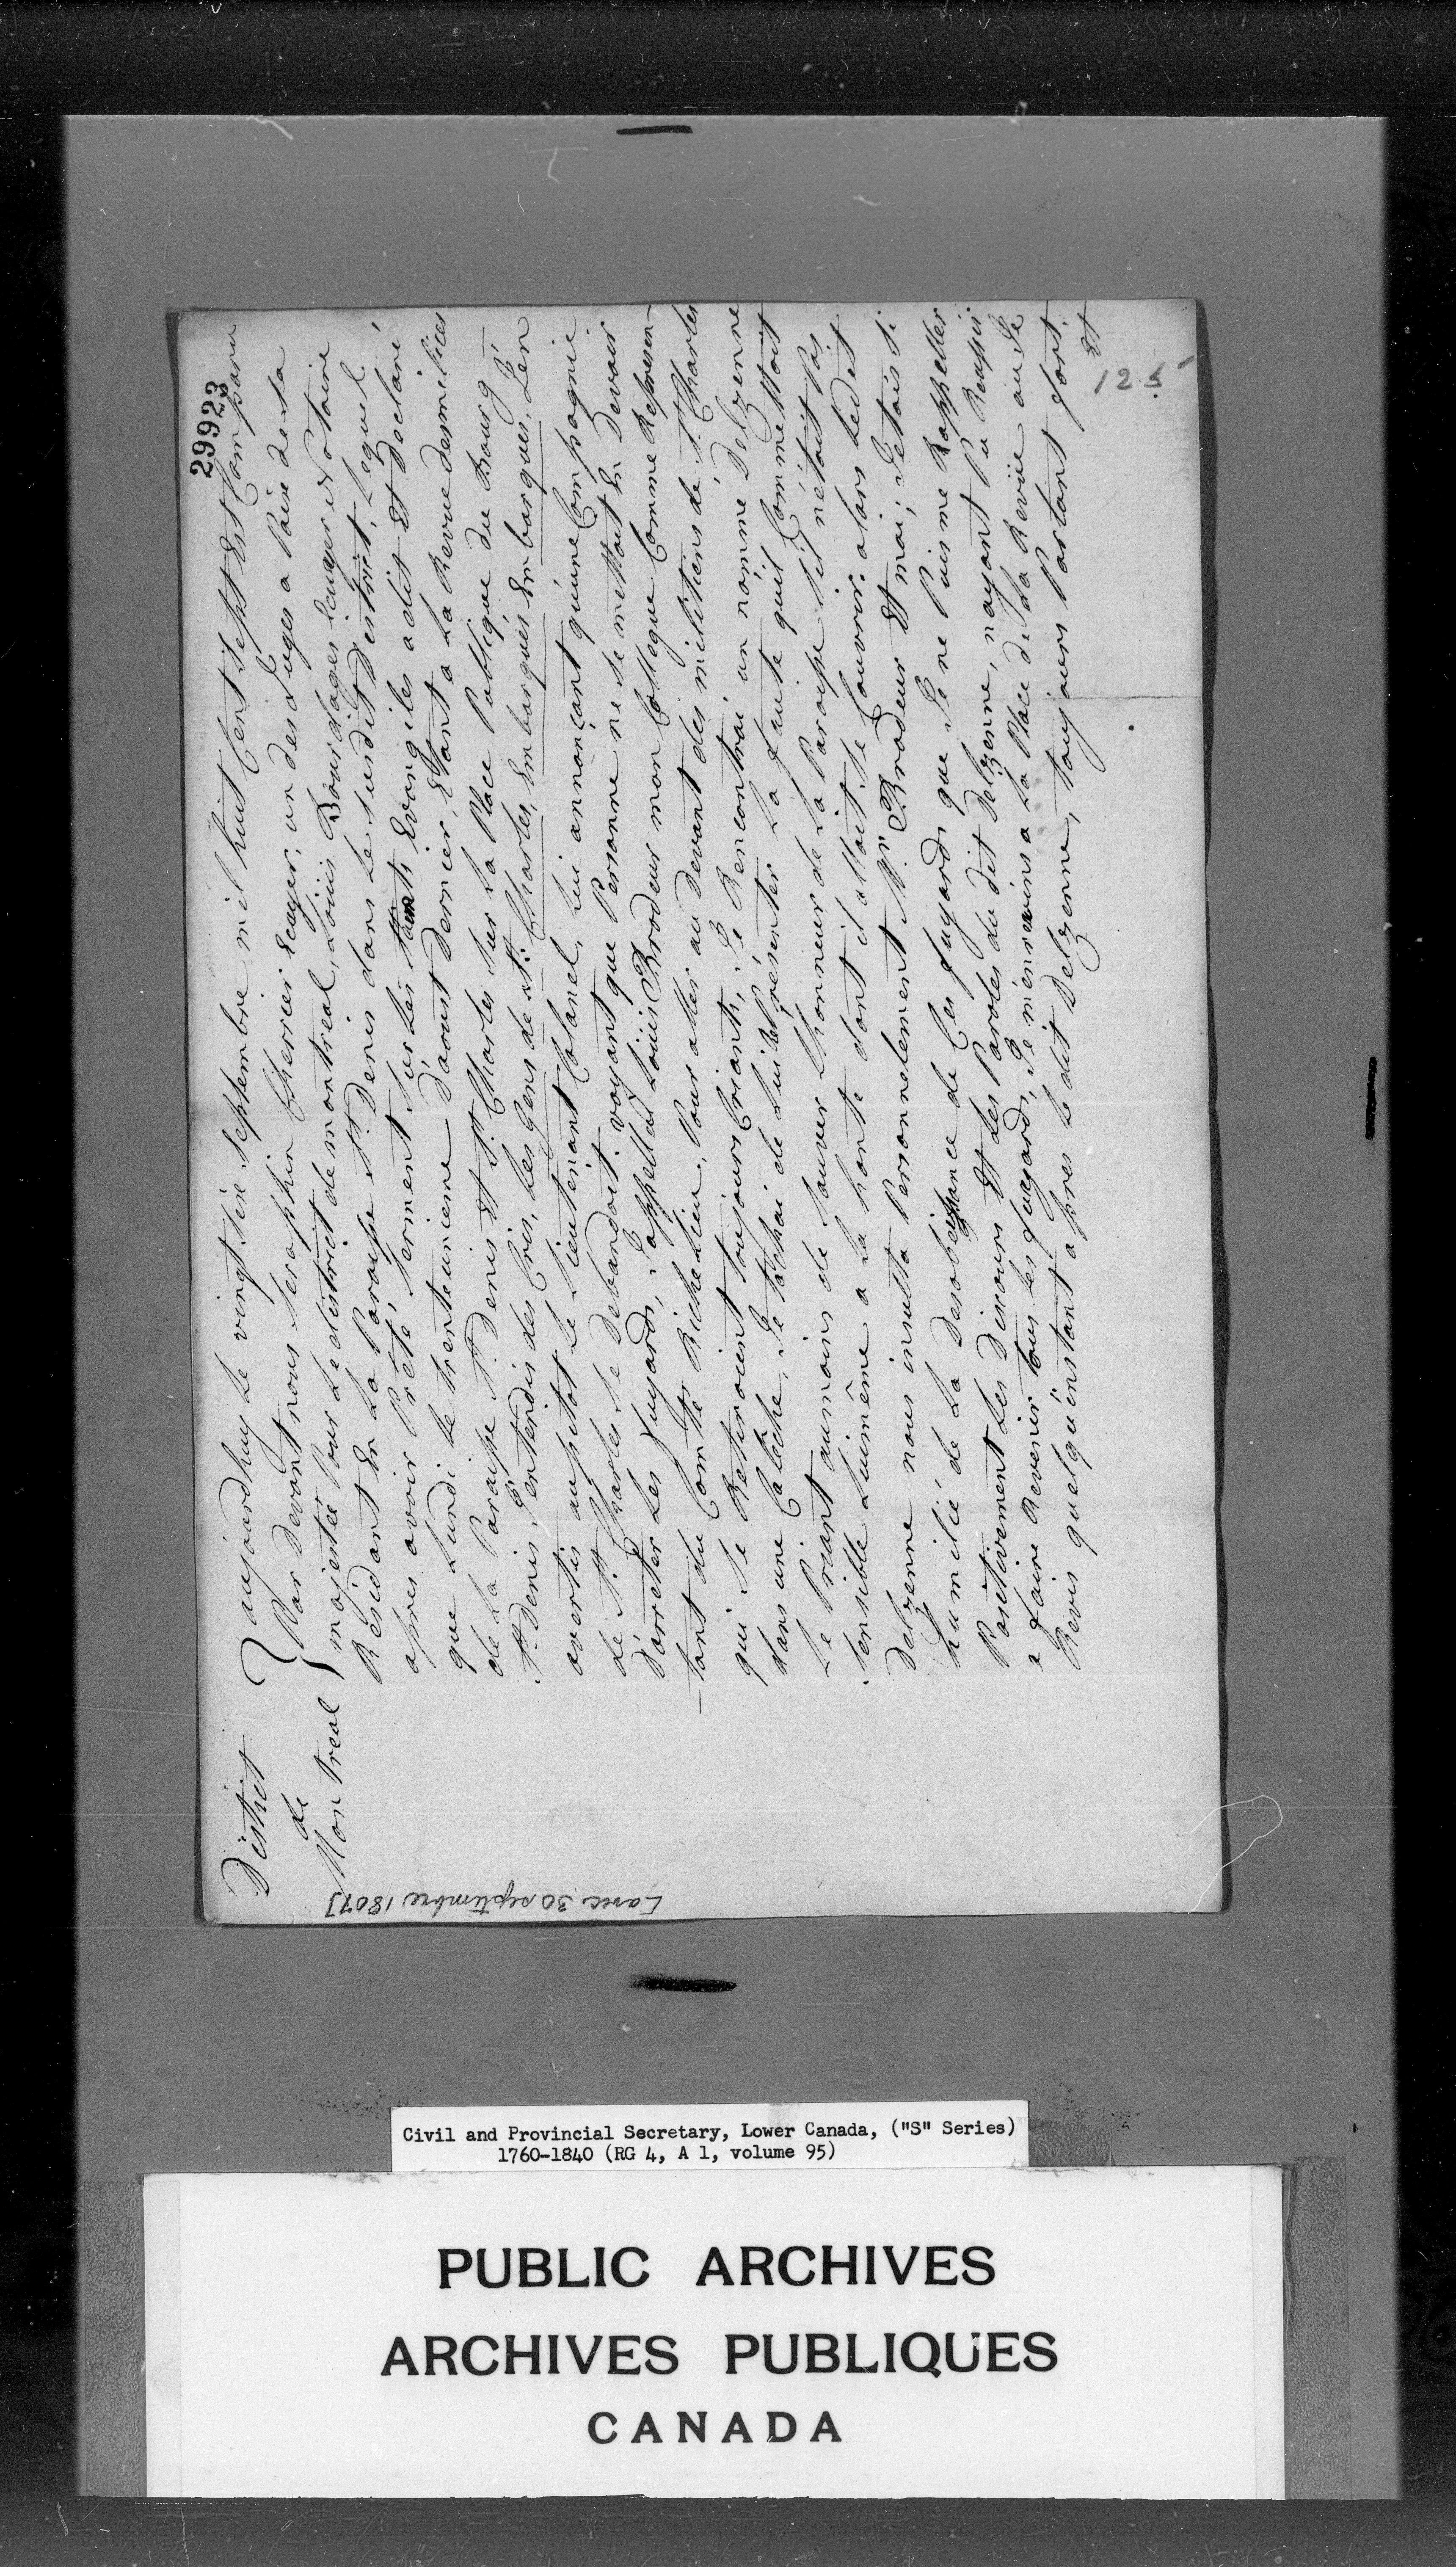 29923
District
de
Montreal
aujourdhuy Le vingt Sixe. Septembre mil huit Cent Sept Est Comparu
Par Devant nous Seraphin Cherrier Ecuyer, un des Juges a Paix de Sa
majestée Pour Le district de montreal, Loüis Bourdages Ecuyer & Notaire
Residant En La Paroisse St. Denis dans Le Susdit District, Lequel
apres avoir Prêté Serment Sur Les Saints Evangiles a dit Et Déclaré
que Lundi Le trente unieme D'aoust Dernier, Etant a La Revue des milices
de La Paroisse St. Denis Et St. Charles Sur La Place Publique du Bourg
St. Denis J'entendis des Cris, Les Gens de St. Charles, Embarqués Embarqués, J'en
avertis aussitot Le Lieutenant Colonel, Lui annonçant qu'une Compagnie
de St. Charles Se Debandoit. voyant que Personne ne Se mettoit En Devoir
D'arreter Les fuyards, J'appellai Loüis Brodeur mon Collegue Comme Represen-
-tant du Comté Richelieu, Pour aller au devant des militiens de St. Charles
qui Se Retiroient toujours Criants, Je Rencontrai un nommé Delzenne
dans une Caléche, Je tachai de Lui Réprésenter La faute quil Commettoit
Le Priant aumoins de Sauver L'honneur de La Paroisse S'il nétoit Pas
Sensible Luimême a La honte dont il alloit Se Couvrir. alors Ledit
Delzenne nous insulta Personnelement Mr. Brodeur Et moi; J'etois Si
humilié de La Desobeissance de Ces fuyards que Je ne Puis me Rappeller
Positivement Les Discours Et Les Paroles du dit Delzenne, nayant Pu Reussir
a faire Revenir tous Les fuyards, Je m'en revins a La Place de La Revüe ou Je
Revis quelqu'instant apres le dit Delzenne, toujours Parlant fort.
Et
125
[avec 30 septembre 1807]
Civil and Provincial Secretary, Lower Canada, ("S" Series)
1760-1840 (RG 4, A 1, volume 95)
PUBLIC ARCHIVES
ARCHIVES PUBLIQUES
CANADA